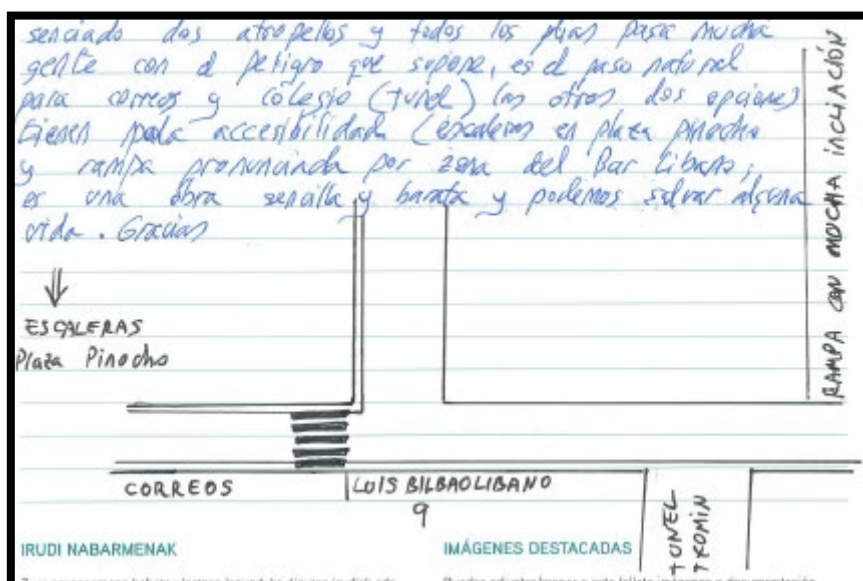 senciado dos atropellos y todos los dias pasa mucha
gente con el peligro que supone, es el paso natural
para correos y colegio (tunel) las otras dos opciones
tienen mala accesibilidad (escaleras en plaza pinocho
y rampa pronunciada por zona del Bar Libano,
es una obra sencilla y barata y podemos salvar alguna
vida. Gracias
ESCALERAS
Plaza Pinocho
RAMPA CON MUCHA INCLIACIÓN
CORREOS
LUIS BILBAO LIBANO
9
TUNEL
IRUDI NABARMENAK
IMÁGENES DESTACADAS